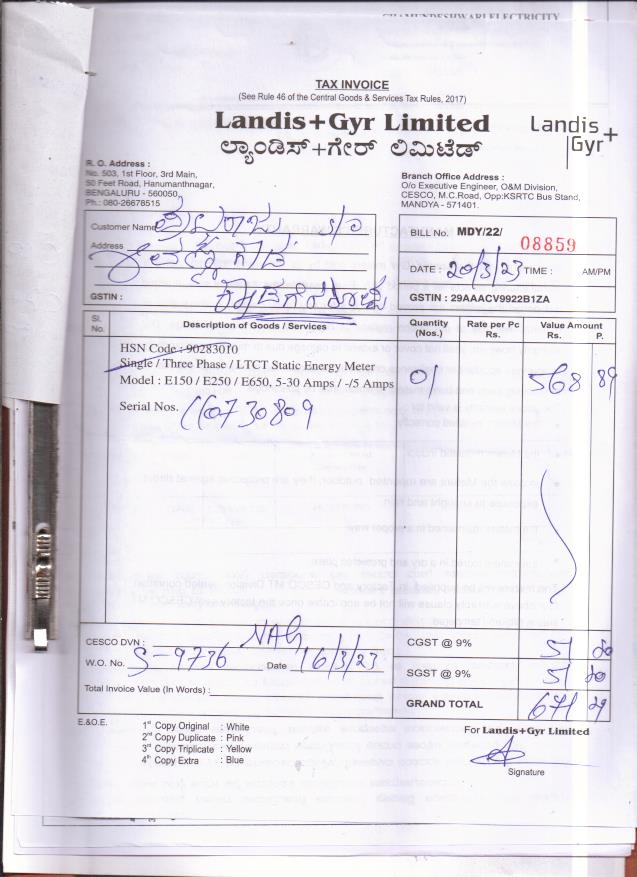 CHAMUNDESHWARI ELECTRICITY
TAX INVOICE
(See Rule 46 of the Central Goods & Services Tax Rules, 2017)
Landis+Gyr Limited
ಲ್ಯಾಂಡಿಸ್+ಗೇರ್ ಲಿಮಿಟೆಡ್
Landis+
Gyr
R. O. Address :
No. 503, 1st Floor, 3rd Main,
50 Feet Road, Hanumanthnagar,
BENGALURU - 560050
Ph.: 080-26678515
Branch Office Address :
O/o Executive Engineer, O&M Division,
CESCO, M.C.Road, Opp:KSRTC Bus Stand,
MANDYA - 571401.
Customer Name S/O
Address
GSTIN :
BILL No. MDY/22/ 08859
DATE : 20/3/23 TIME : AM/PM
GSTIN : 29AAACV9922B1ZA
Sl. No. Description of Goods / Services Quantity (Nos.) Rate per Pc Rs. Value Amount Rs. P.
HSN Code : 90283010
Single / Three Phase / LTCT Static Energy Meter
Model : E150 / E250 / E650, 5-30 Amps / -/5 Amps 01 568 89
Serial Nos. 110730809
CESCO DVN : NAG
W.O. No. S-9736 Date 16/3/23
Total Invoice Value (In Words) :
CGST @ 9% 51 20
SGST @ 9% 51 20
GRAND TOTAL 671 29
E.&O.E.
1st Copy Original : White
2nd Copy Duplicate : Pink
3rd Copy Triplicate : Yellow
4th Copy Extra : Blue
For Landis+Gyr Limited
Signature